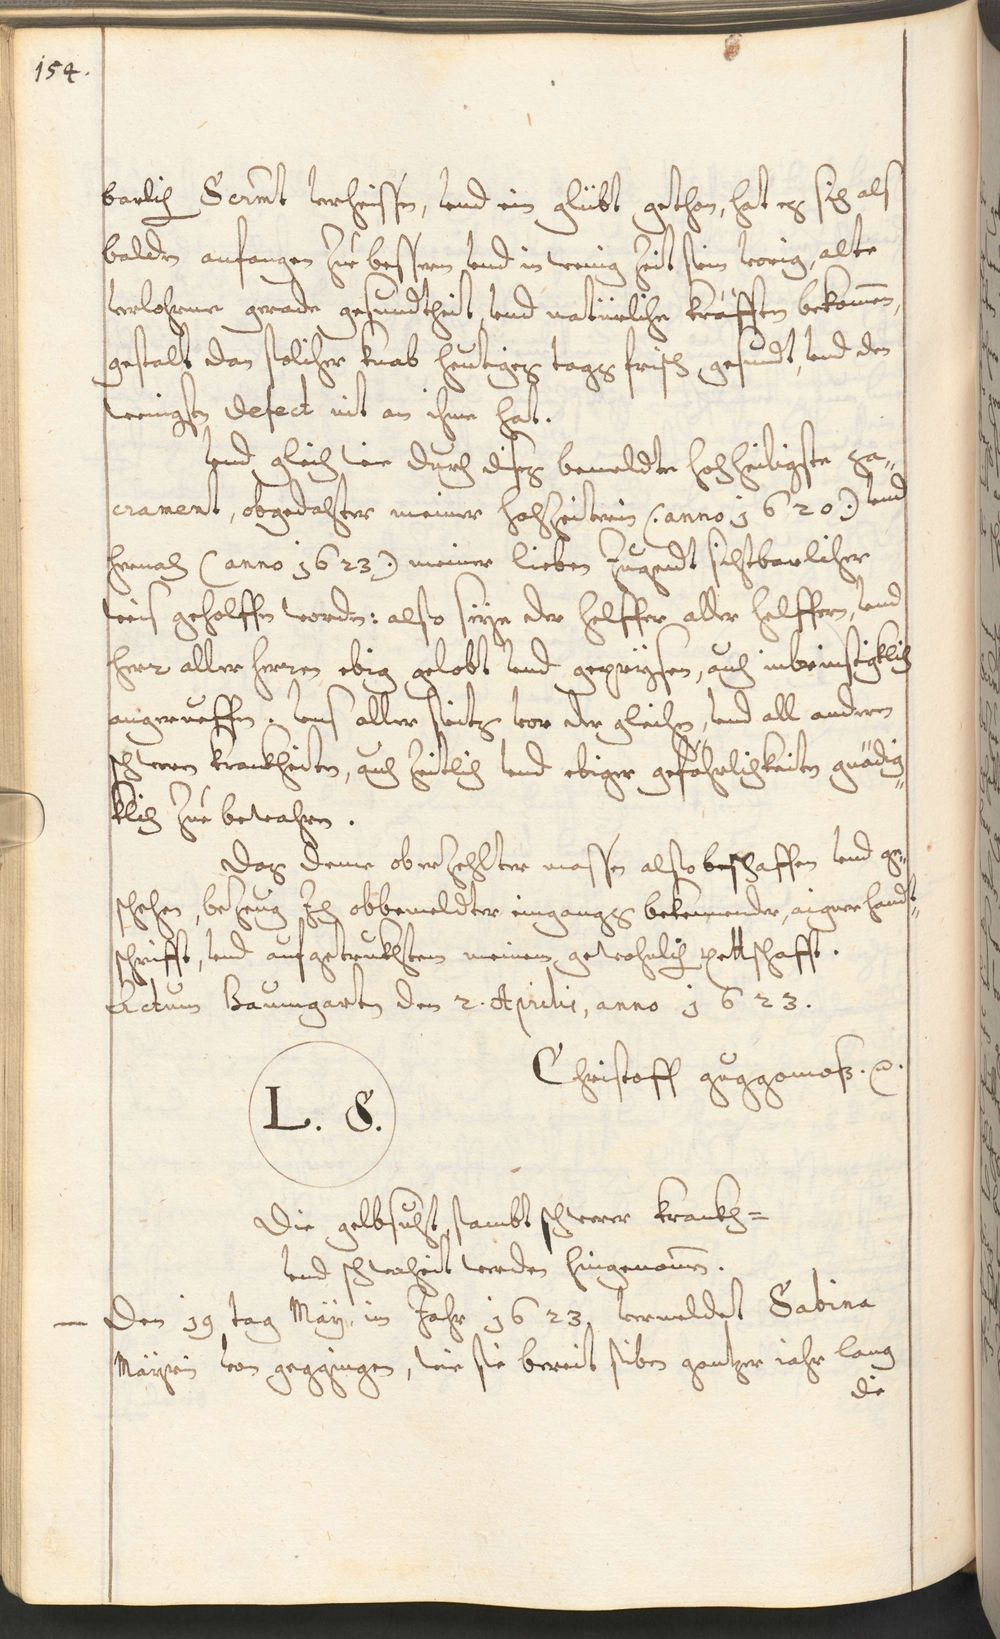 154.
barlich Scrm̃t verheissen, vnd ein glübt gethon, hat es sich als
balden anfangen zue bessern vnd in wenig zeit sein vorig, alte
verlohrne gerade gesundtheit, vnd natürliche kräfften bekom̃en,
gestalt dan solicher knab heutiges tags frisch gesundt, vnd den
wenigsten defect nit an ihme hat.
Vnd gleich wie durch dises bemeldte hochheiligiste sa„
crament, obgedachter meiner hochzeiterin (: anno 1620 :) vnd
hernach (anno 1623 :) meiner lieben Jugendt sichtbarlicher
weis geholffen worden: also seye der helffer aller helffern, vnd
herr aller herren ebig gelobt vnd geprysen, auch inbrinstigklich
angerueffen. Vns aller seits vor der gleichen, vnd all anderen
schweren krankheiten, auch zeitlich vnd ebiger gefährlichkeiten gnädig„
klich zue bewahren.
Das deme oberzehlter massen also beschaffen vnd ge„
schehen, bezeug Ich obbemeldter eingangs bekennender, aigner handt„
schrifft, vnd aufgetrukhtem meinem gewohnlich pettschafft.
Actum Baumgarten den 2. Aprilis, anno 1623.
Christoff guggomoß.
L. S.
Die gelbsucht, sambt schwerer krankh=
vnd schwacheit werden hingenom̃en.
Den 19 tag Mäy, im Jahr 1623, vermeldet Sabina
Mäyrin von geggingen, wie sie bereit siben gantzer iahr lang
die